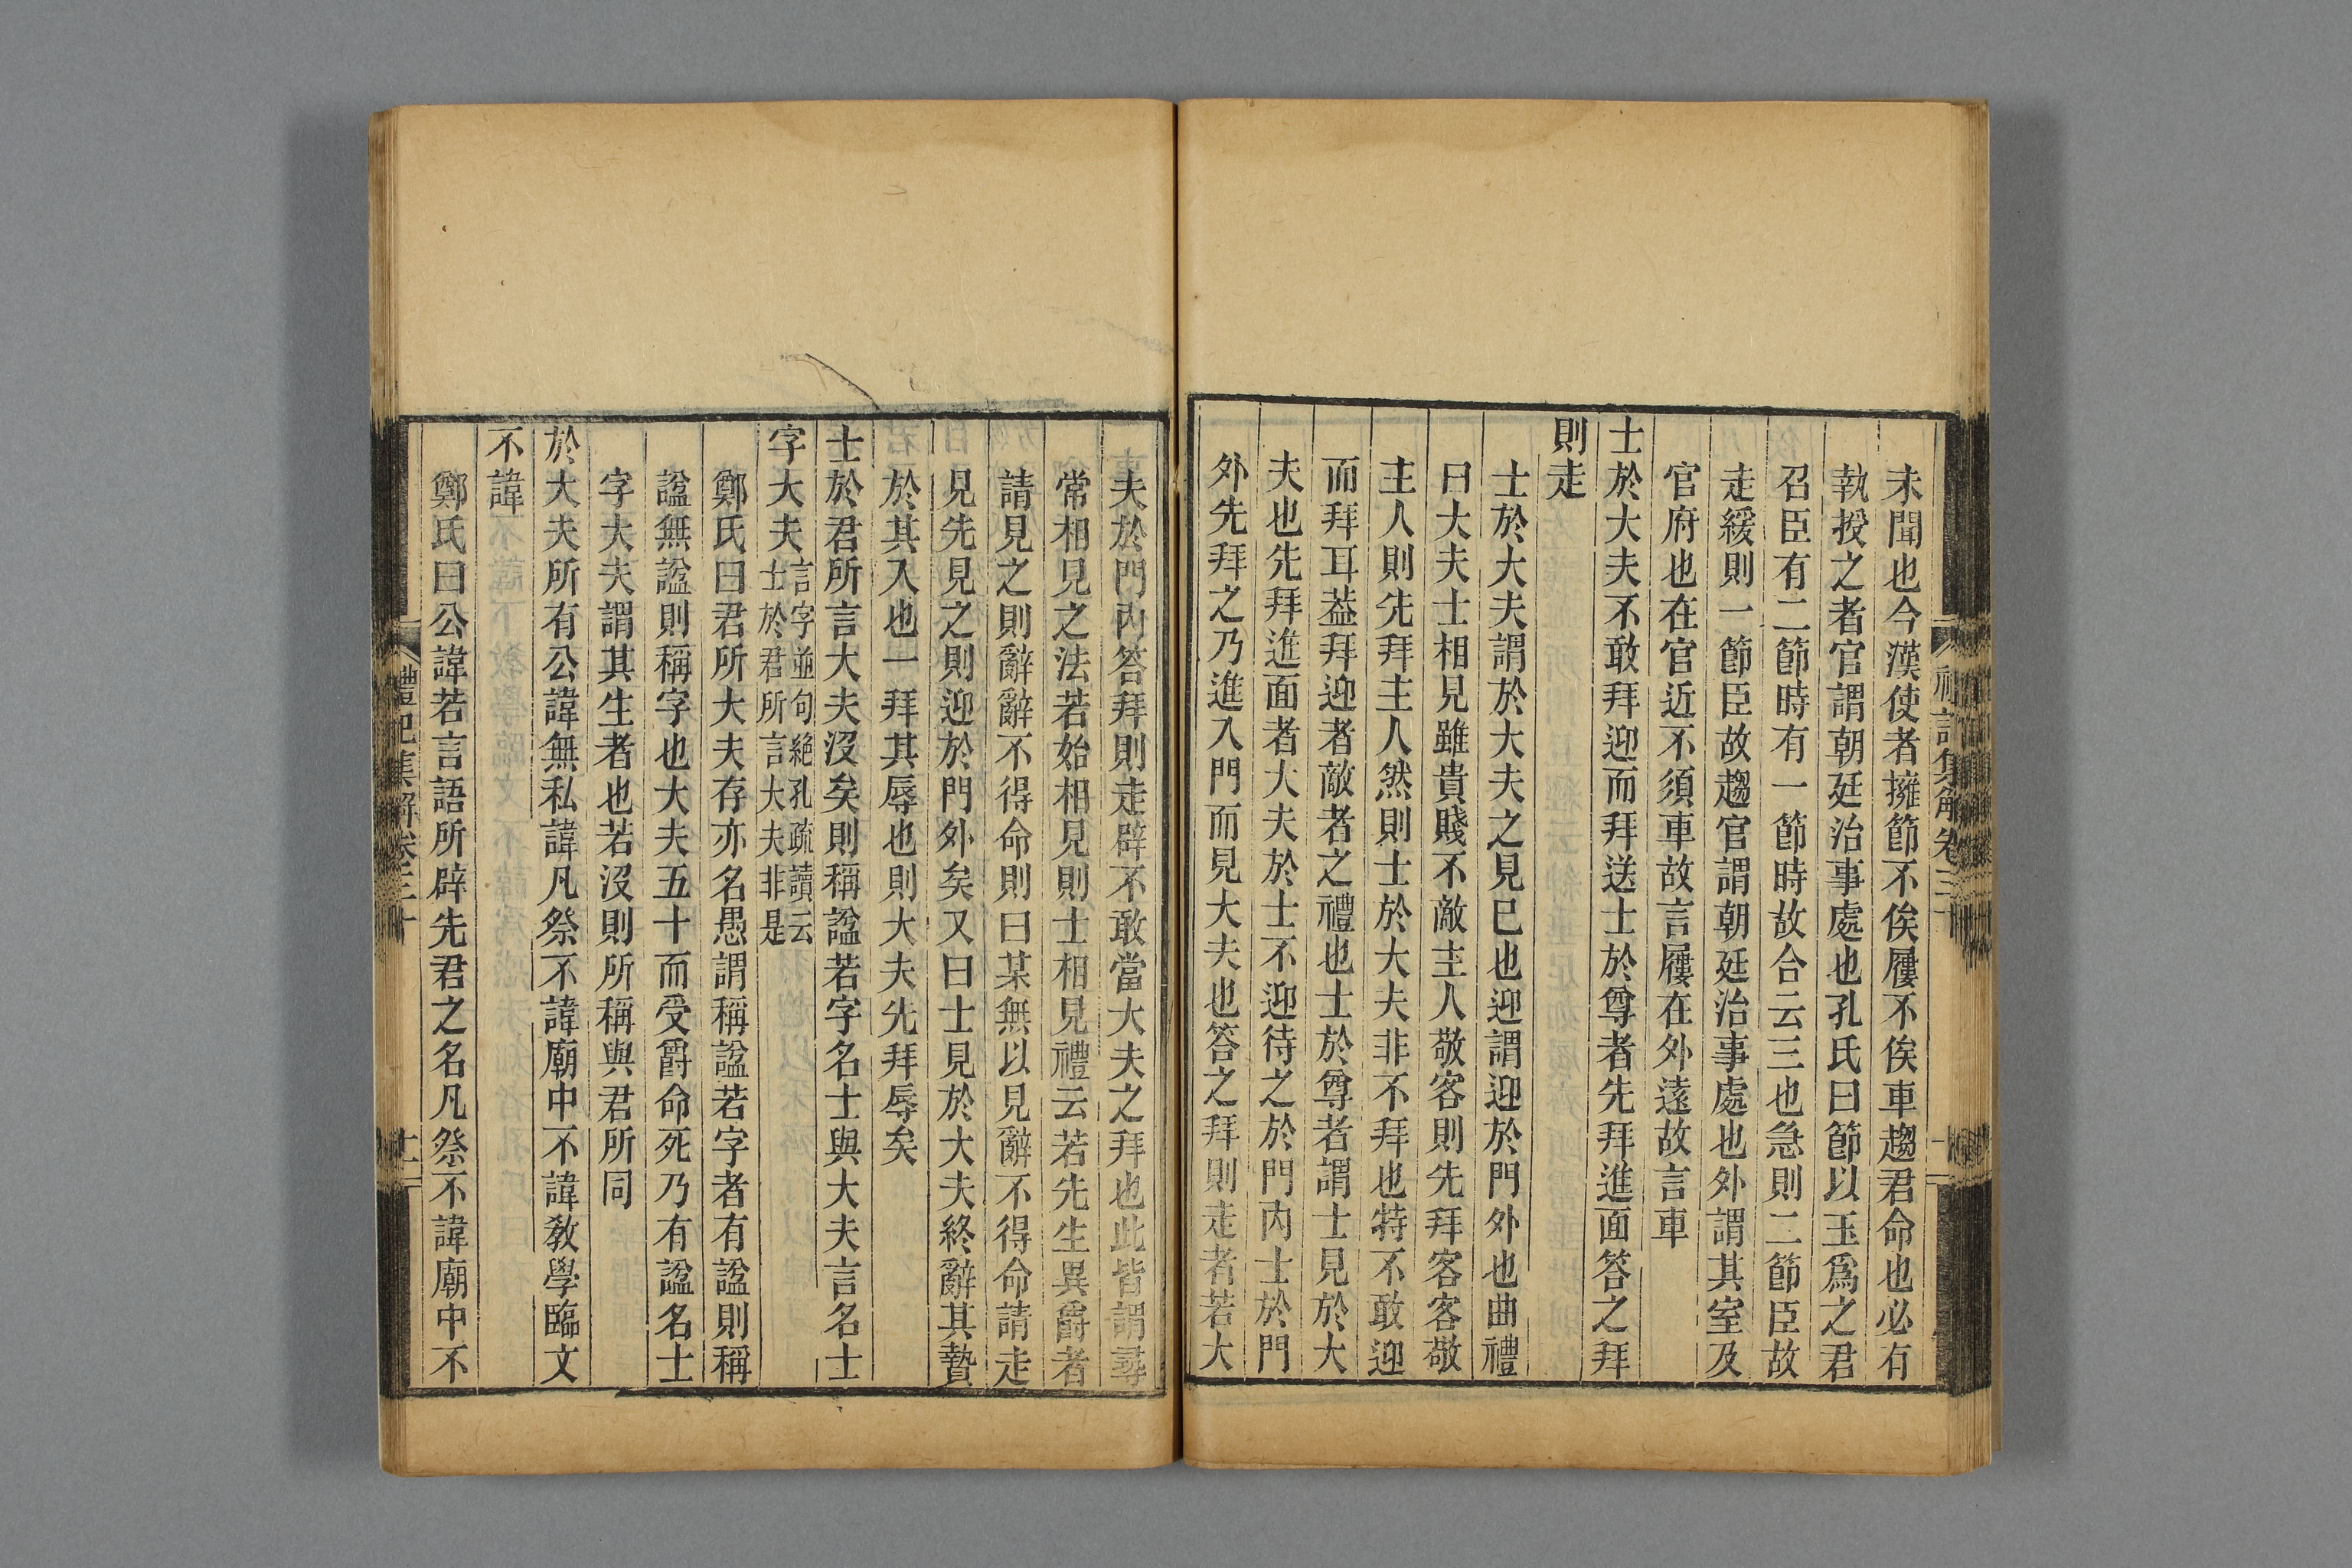 未聞也今漢使者擁節不俟屨不俟車趨君命也必有
執授之者官謂朝廷治事處也孔氏曰節以玉爲之君
召臣有二節時有一節時故合云三也急則二節臣故
走緩則一節臣故趨官謂朝廷治事處也外謂其室及
官府也在官近不須車故言屨在外遠故言車
士於大夫不敢拜迎而拜送士於尊者先拜進面答之拜
則走
士於大夫謂於大夫之見已也迎謂迎於門外也曲禮
曰大夫士相見雖貴賤不敵主人敬客則先拜客客敬
主人則先拜主人然則士於大夫非不拜也特不敢迎
而拜耳葢拜迎者敵者之禮也士於尊者謂士見於大
夫也先拜進面者大夫於士不迎待之於門內士於門
外先拜之乃進入門而見大夫也答之拜則走者若大
夫於門內答拜則走辟不敢當大夫之拜也此皆謂尋
常相見之法若始相見則士相見禮云若先生異爵者
請見之則辭辭不得命則曰某無以見辭不得命請走
見先見之則迎於門外矣又曰士見於大夫終辭其贄
於其入也一拜其辱也則大夫先拜辱矣
士於君所言大夫沒矣則稱諡若字名士與大夫言名士
字大夫
言字並句絶孔疏讀云
士於君所言大夫非是
鄭氏曰君所大夫存亦名愚謂稱諡若字者有諡則稱
諡無諡則稱字也大夫五十而受爵命死乃有諡名士
字大夫謂其生者也若沒則所稱與君所同
於大夫所有公諱無私諱凡祭不諱廟中不諱敎學臨文
不諱
鄭氏曰公諱若言語所辟先君之名凡祭不諱廟中不
禮記集解卷三十